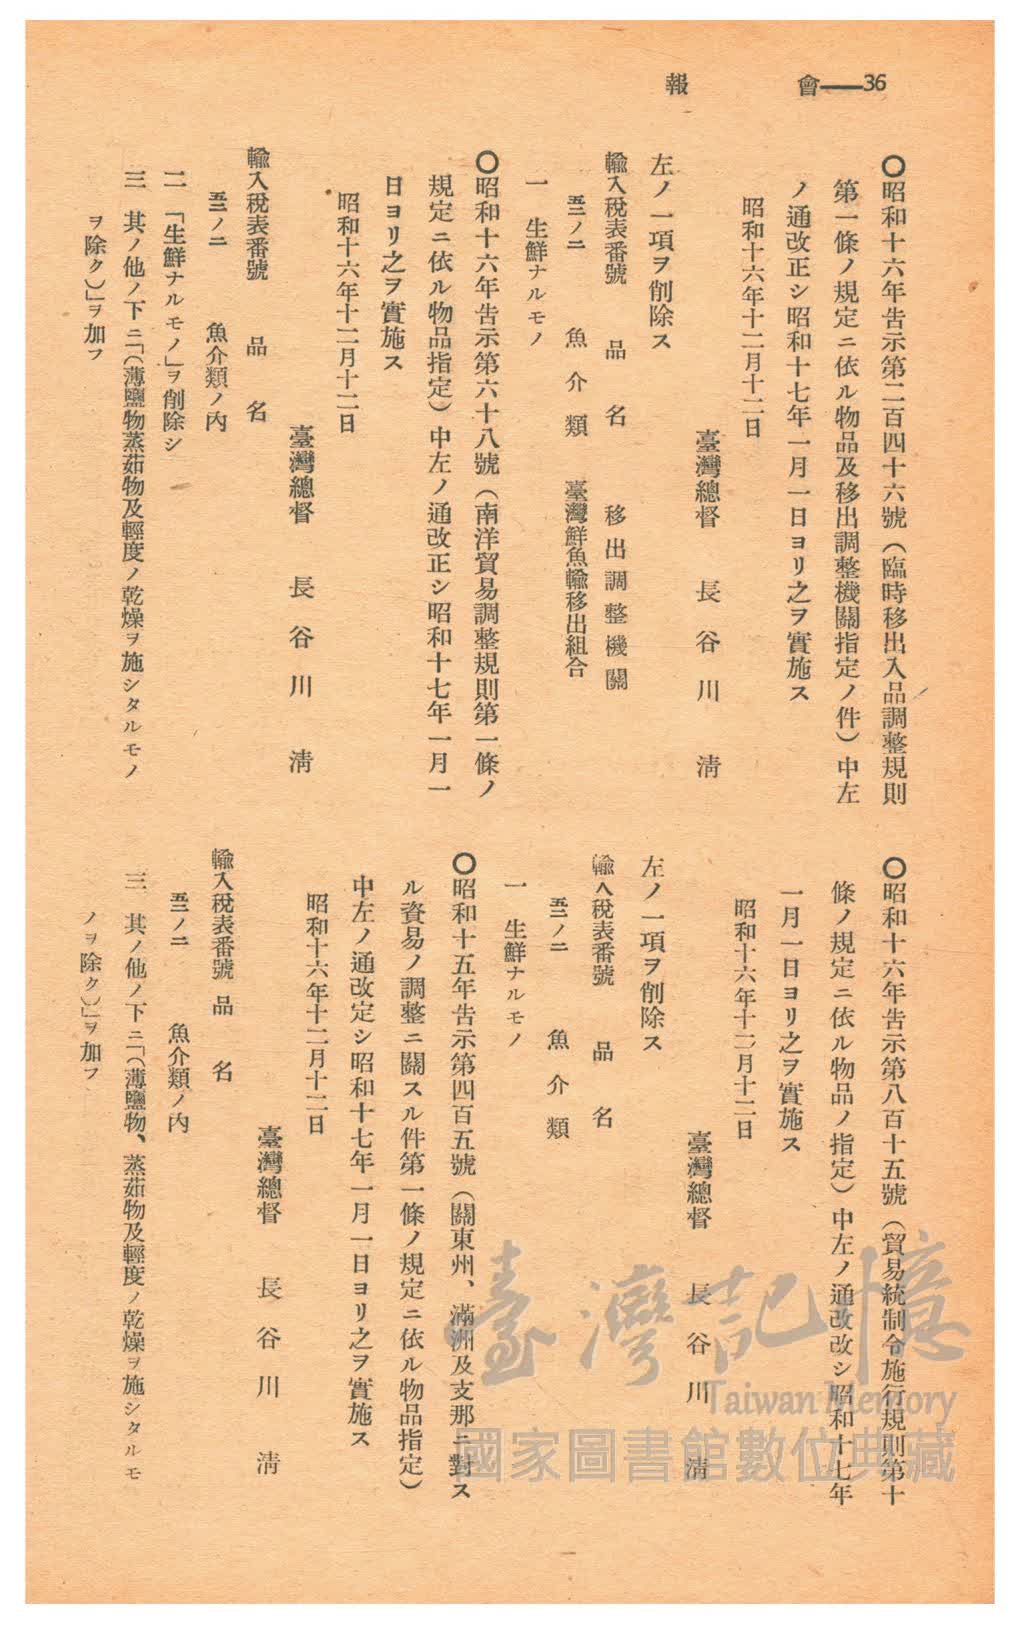 36――會報
〇昭和十六年告示第二百四十六號（臨時移出入品調整規則
第一條ノ規定ニ依ル物品及移出調整機關指定ノ件）中左
ノ通改正シ昭和十七年一月一日ヨリ之ヲ實施ス
昭和十六年十二月十二日
臺灣總督　長谷川　淸
左ノ一項ヲ削除ス
輸入税表番號　品名　移出調整機關
五三ノ二　魚介類　臺灣鮮魚輸移出組合
一　生鮮ナルモノ
〇昭和十六年告示第六十八號（南洋貿易調整規則第一條ノ
規定ニ依ル物品指定）中左ノ通改正シ昭和十七年一月一
日ヨリ之ヲ實施ス
昭和十六年十二月十二日
臺灣總督　長谷川　淸
輸入税表番號　品名
五三ノ二　魚介類ノ內
二　「生鮮ナルモノ」ヲ削除シ
三　其ノ他ノ下ニ「（薄鹽物蒸茹物及輕度ノ乾燥ヲ施シタルモノ
ヲ除ク）」ヲ加フ
〇昭和十六年告示第八百十五號（貿易統制令施行規則第十
條ノ規定ニ依ル物品ノ指定）中左ノ通改改シ昭和十七年
一月一日ヨリ之ヲ實施ス
昭和十六年十二月十二日
臺灣總督　長谷川　淸
左ノ一項ヲ削除ス
輸入税表番號　品名
五三ノ二　魚介類
一　生鮮ナルモノ
〇昭和十五年告示第四百五號（關東州、滿洲及支那ニ對ス
ル資易ノ調整ニ關スル件第一條ノ規定ニ依ル物品指定）
中左ノ通改定シ昭和十七年一月一日ヨリ之ヲ實施ス
昭和十六年十二月十二日
臺灣總督　長谷川　淸
輸入税表番號　品名
五三ノ二　魚介類ノ內
三　其ノ他ノ下ニ「（薄鹽物、蒸茹物及輕度ノ乾燥ヲ施シタルモ
ノヲ除ク）」ヲ加フ
臺灣記憶
Taiwan Memory
國家圖書館數位典藏